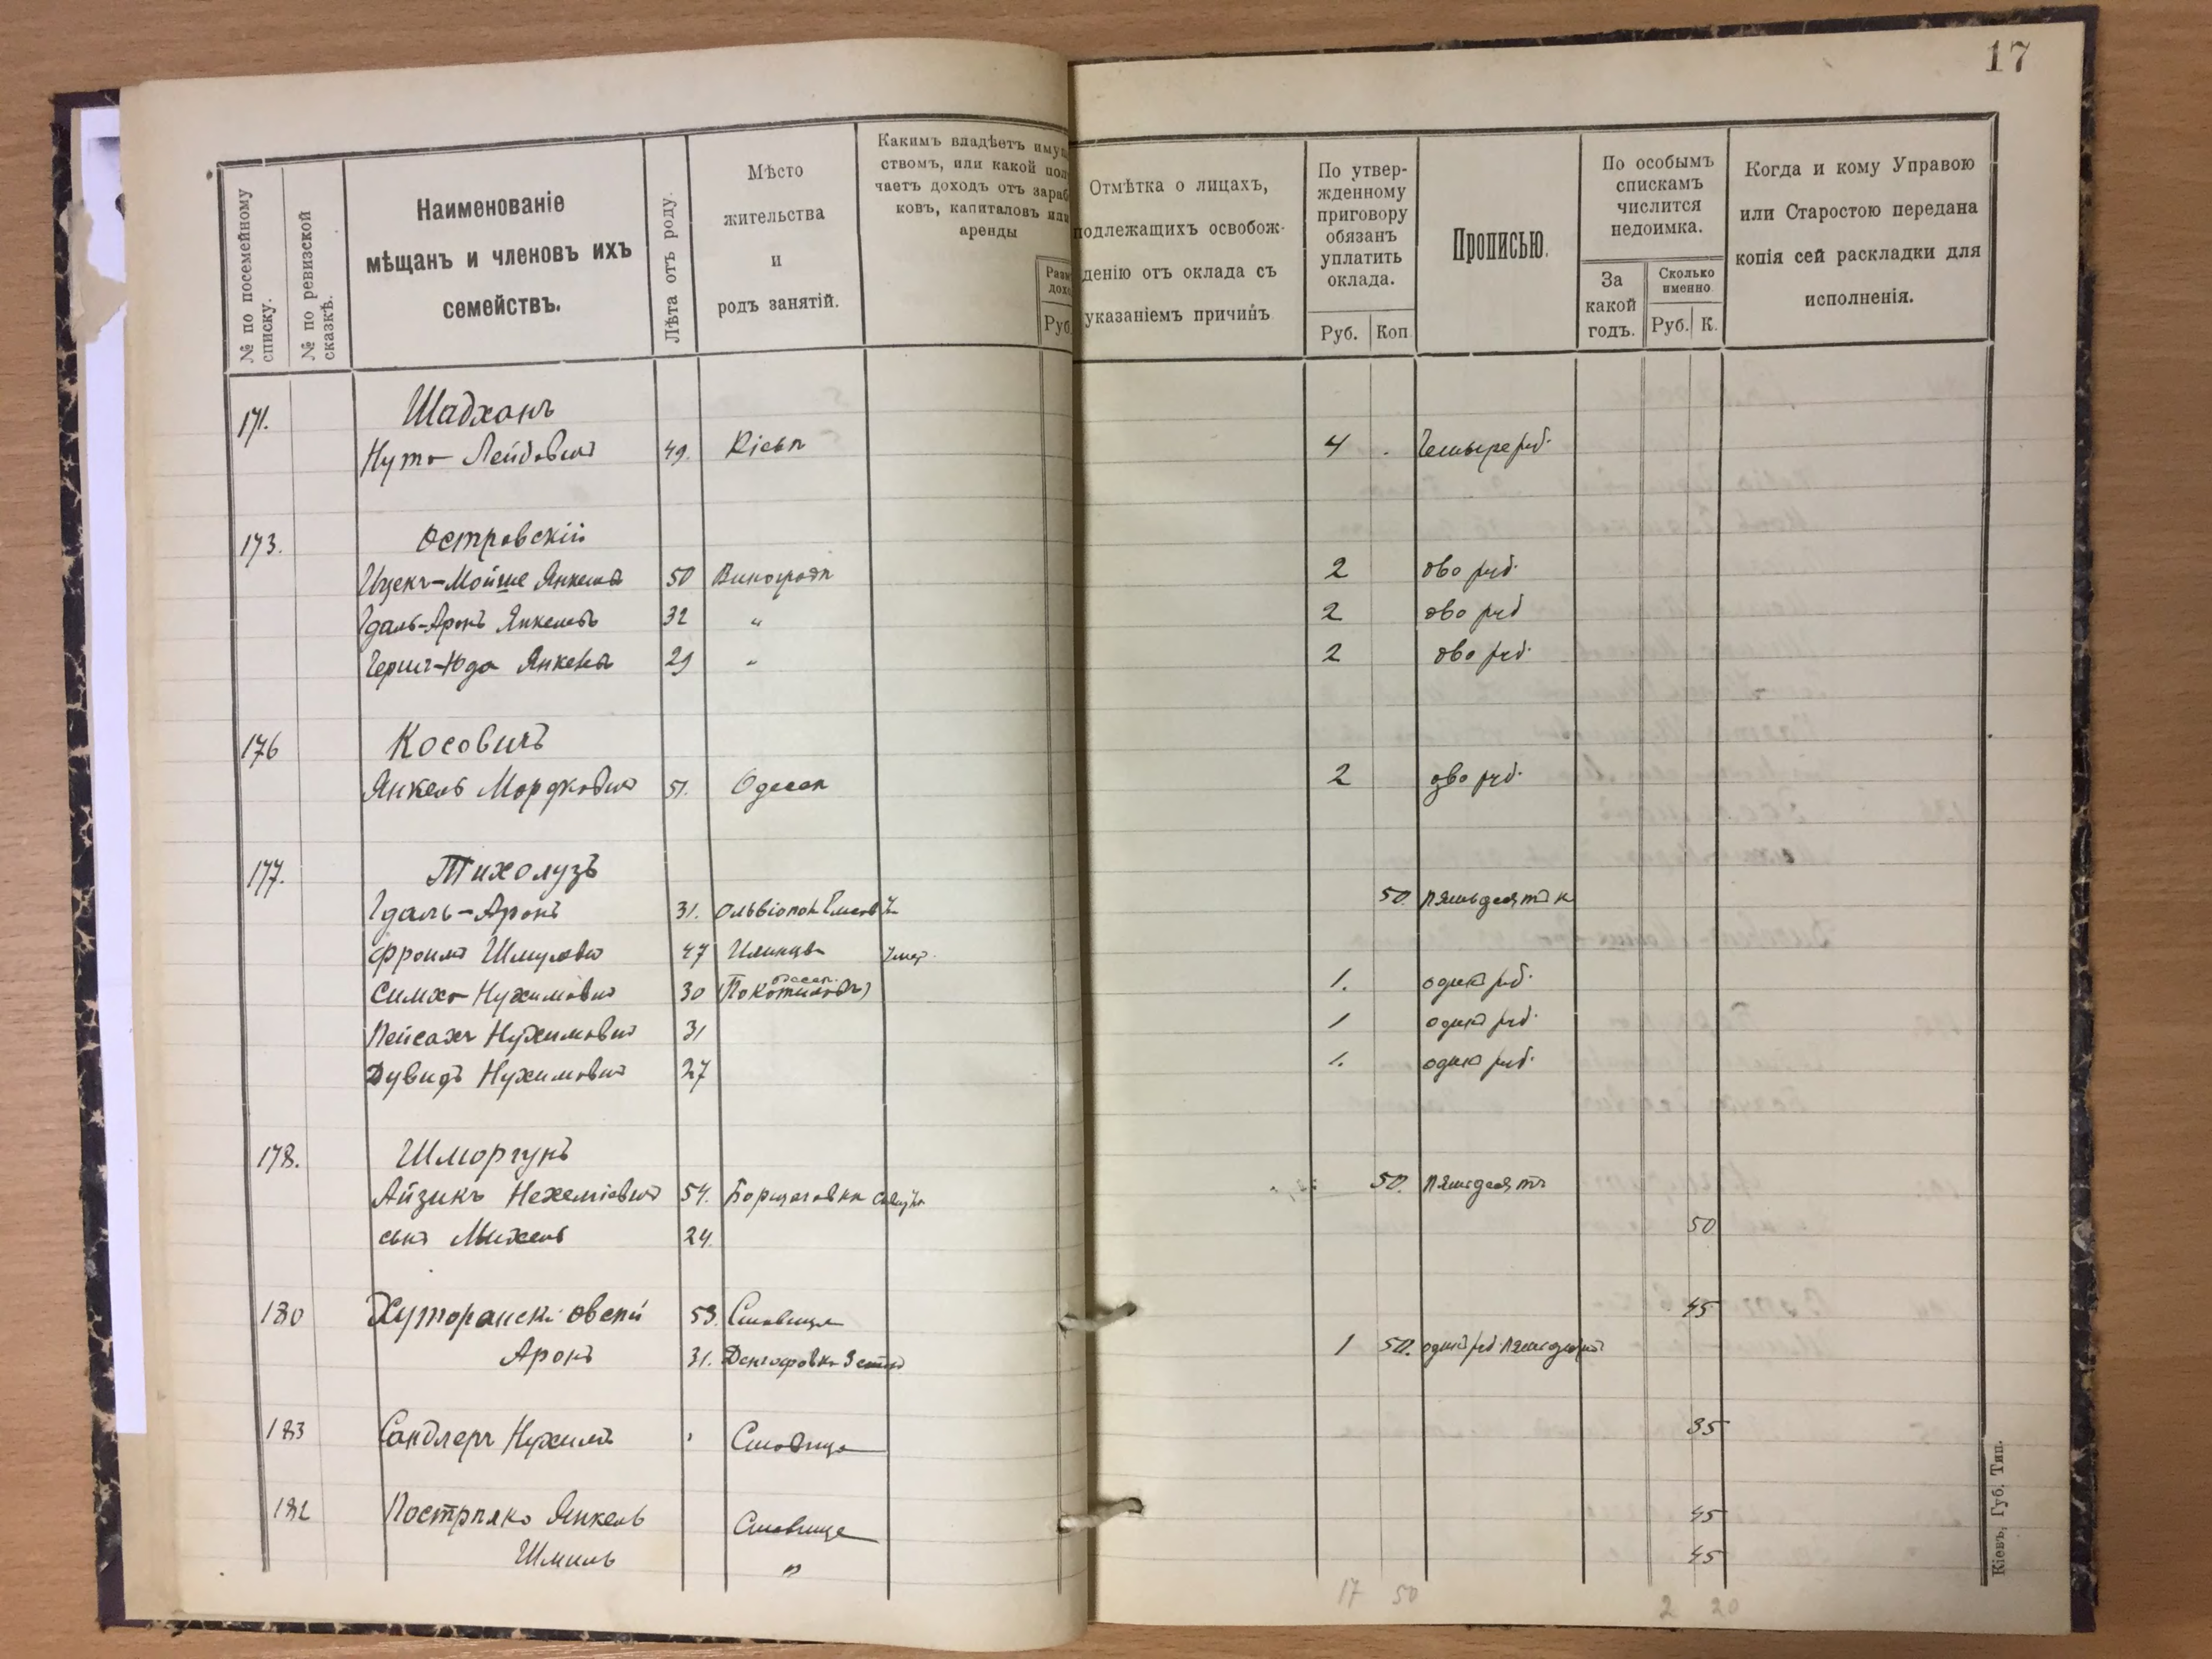 17
№ по посемейному списку.
№ по ревизской сказкѣ.
Наименованіе
мѣщанъ и членовъ ихъ
семействъ.
Лѣта отъ роду.
Мѣсто
жительства
и
родъ занятій.
Какимъ владѣетъ иму
ствомъ, или какой пол
чаетъ доходъ отъ зараб
ковъ, капиталовъ или
аренды
Разм
дохо
Руб.
Отмѣтка о лицахъ,
подлежащихъ освобож-
денію отъ оклада съ
указаніемъ причинъ
По утвер-
жденному
приговору
обязанъ
уплатить
оклада.
Руб. Коп.
Прописью.
По особымъ
спискамъ
числится
недоимка.
За
какой
годъ.
Сколько
именно
Руб. К.
Когда и кому Управою
или Старостою передана
копія сей раскладки для
исполненія.
171. Шадханъ
Нута Лейбовъ 49. Кіевъ 4 Четыре руб.
173. Островскій
Ицекъ-Мойше Янкель 50 Виноградъ 2 два руб.
Гдаль-Аронъ Янкель 32 " 2 два руб
Герш-Юда Янкель 29 " 2 два руб.
176 Косовичъ
Янкель Мордковъ 51. Одесса 2 два руб.
177. Тихолузъ
Гдаль-Аронъ 31. 50. пятьдесятъ к
Фроимъ Шмулевъ 47 Илинцы
Симха Нухимовъ 30 1. одинъ руб.
Пейсахъ Нухимовъ 31 1 одинъ руб.
Дувидъ Нухимовъ 27 1. одинъ руб.
178. Шморгунъ
Айзикъ Нехеміевъ 54. Борщаговка 50. пятьдесятъ
сынъ Михель 24. 50
180 53. Ставище 45
Аронъ 31. 1 50. одинъ руб. пятьдесятъ
183 Сандлеръ Нухимъ Ставище 35
182 Янкель Ставище 45
Шмиль " 45
17 50
2 20
Кіевъ, Губ. Тип.